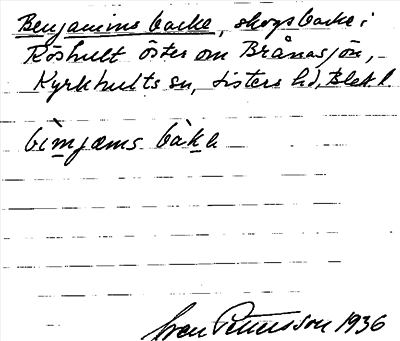 Benjamins backe, skogsbacke i
Röshult öster om Brånasjön,
Kyrkhults sn, Listers hd, Blek. l.
bìmjæms bàkə
Sven Pettersson 1936